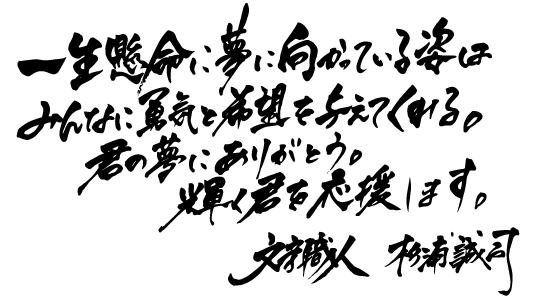 一生懸命に夢に向かっている姿は
みんなに勇気と希望を与えてくれる。
君の夢にありがとう。
輝く君を応援します。
文字職人 杉浦誠司